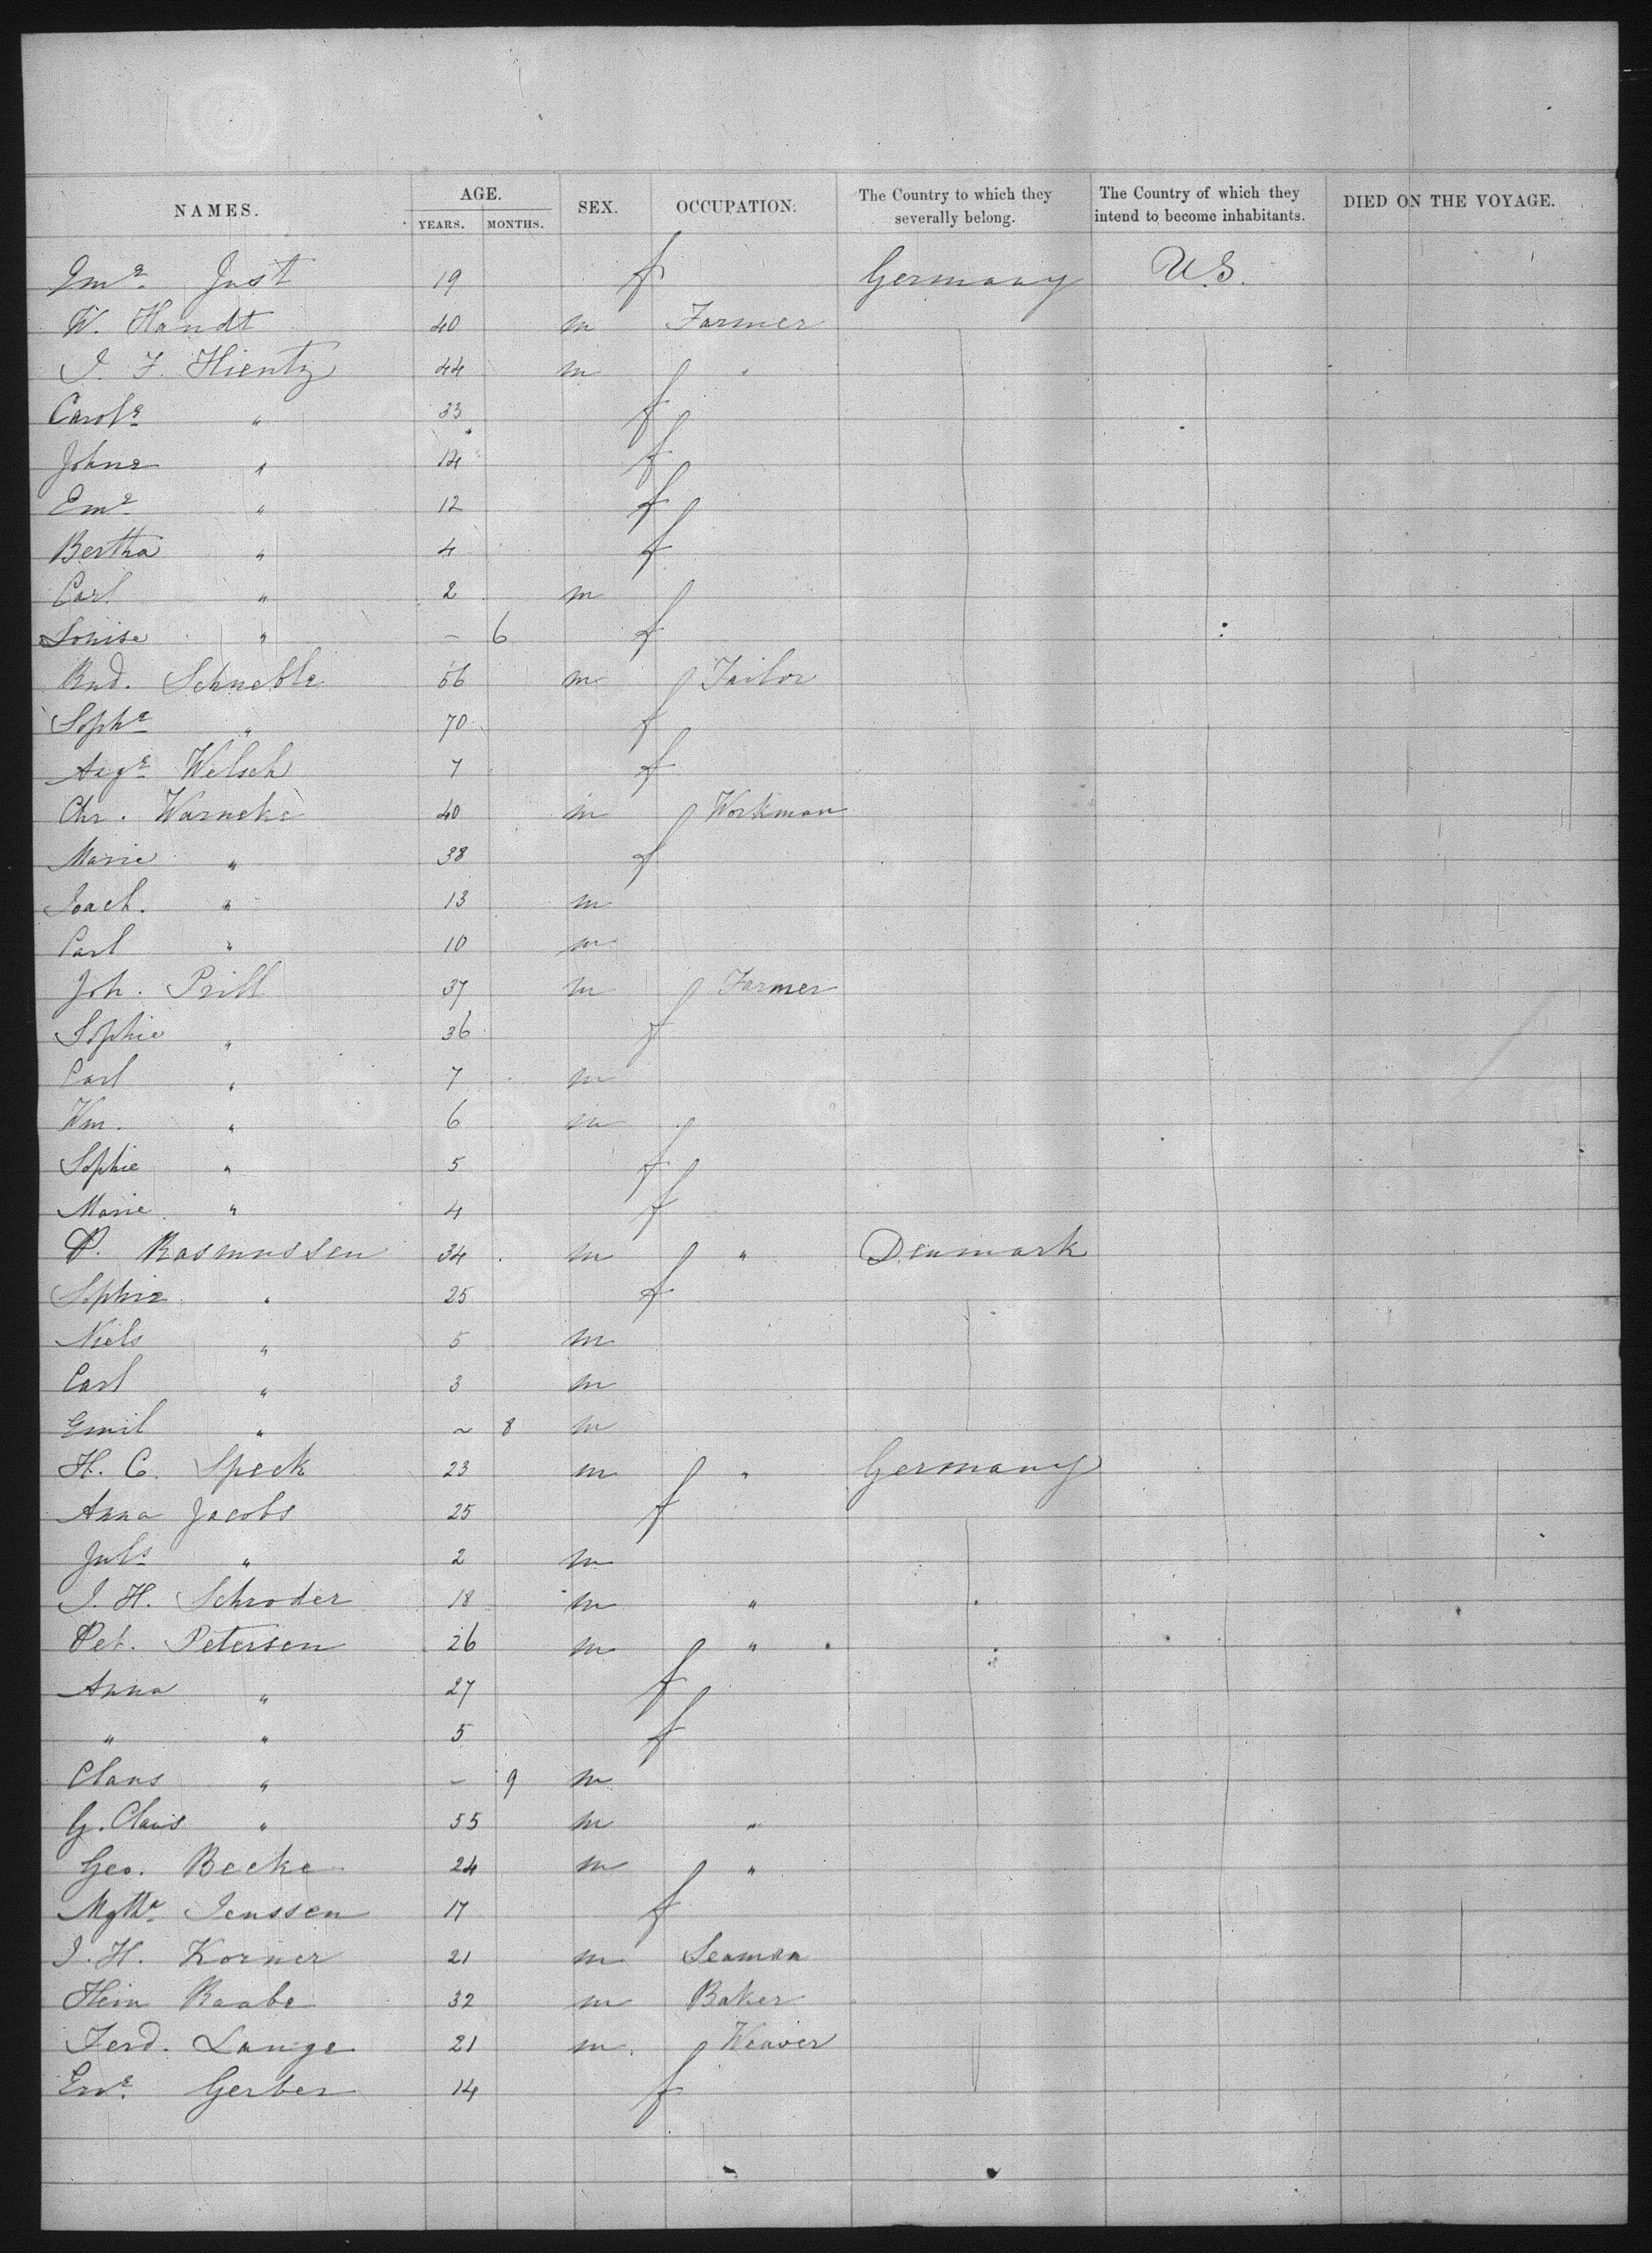 NAMES. AGE. YEARS. MONTHS. SEX. OCCUPATION. The Country to which they severally belong. The Country of which they intend to become inhabitants. DIED ON THE VOYAGE.
Emᵉ Just 19 f Germany U.S.
W. Handt 40 m Farmer
J. F. Hientz 44 m "
Carolᵉ " 33 f
Johne " 14 f
Emᵉ " 12 f
Bertha " 4 f
Carl " 2 m
Louise " – 6 f
Rud. Schneble 56 m Tailor
Sophᵉ " 70 f
Augᵉ Welsch 7 f
Chr. Warneke 40 m Workman
Marie " 38 f
Joach. " 13 m
Carl " 10 m
Joh. Prill 37 m Farmer
Sophie " 36 f
Carl " 7 m
Wm. " 6 m
Sophie " 5 f
Marie " 4 f
P. Rasmussen 34 m " Denmark
Sophie " 25 f
Niels " 5 m
Carl " 3 m
Emil " ~ 8 m
H. C. Speck 23 m " Germany
Anna Jacobs 25 f
Julˢ " 2 m
J. H. Schroder 18 m "
Pet. Petersen 26 m "
Anna " 27 f
" " 5 f
Claus " – 9 m
G. Claus " 55 m "
Geo. Becke 24 m "
Mgthᵉ Jenssen 17 f
J. H. Korner 21 m Seaman
Hein Raabe 32 m Baker
Ferd. Lange 21 m Weaver
Erᵉ. Gerber 14 f